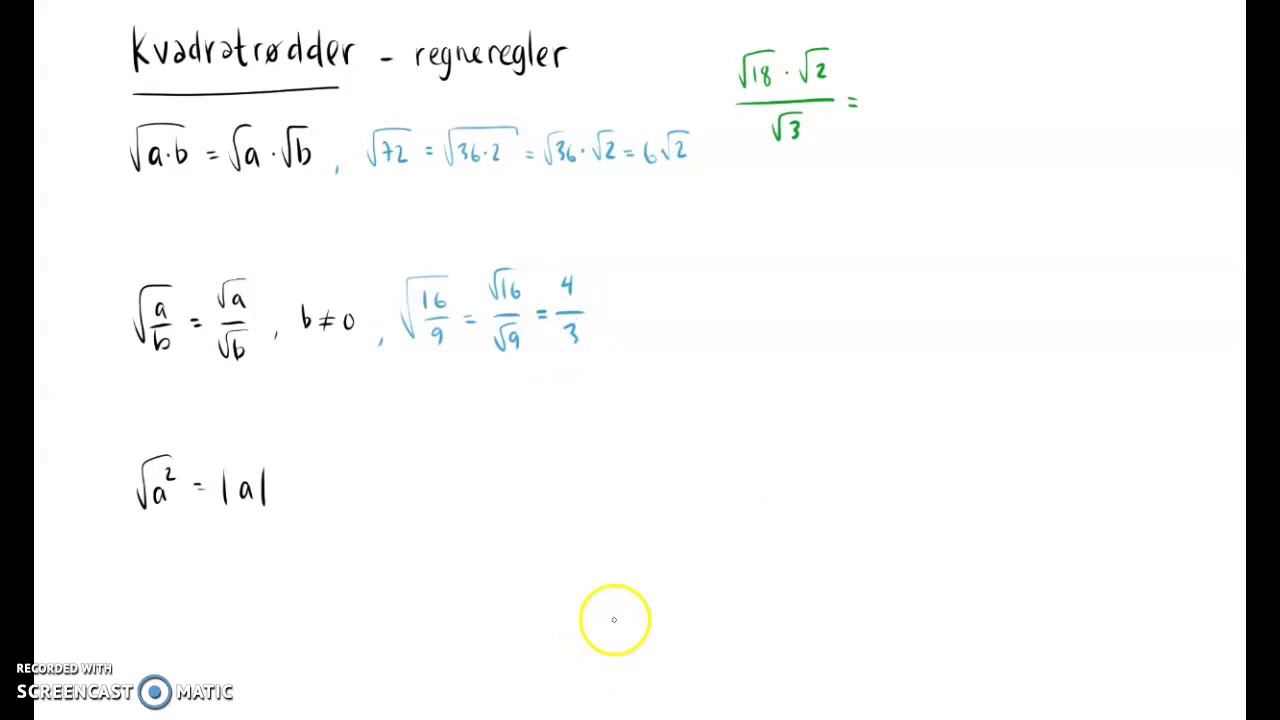 Kvadratrødder - regneregler
√18 · √2 / √3 =
√(a·b) = √a · √b , √72 = √(36·2) = √36 · √2 = 6√2
√(a/b) = √a/√b , b ≠ 0 , √(16/9) = √16/√9 = 4/3
√a² = |a|
RECORDED WITH
SCREENCAST MATIC